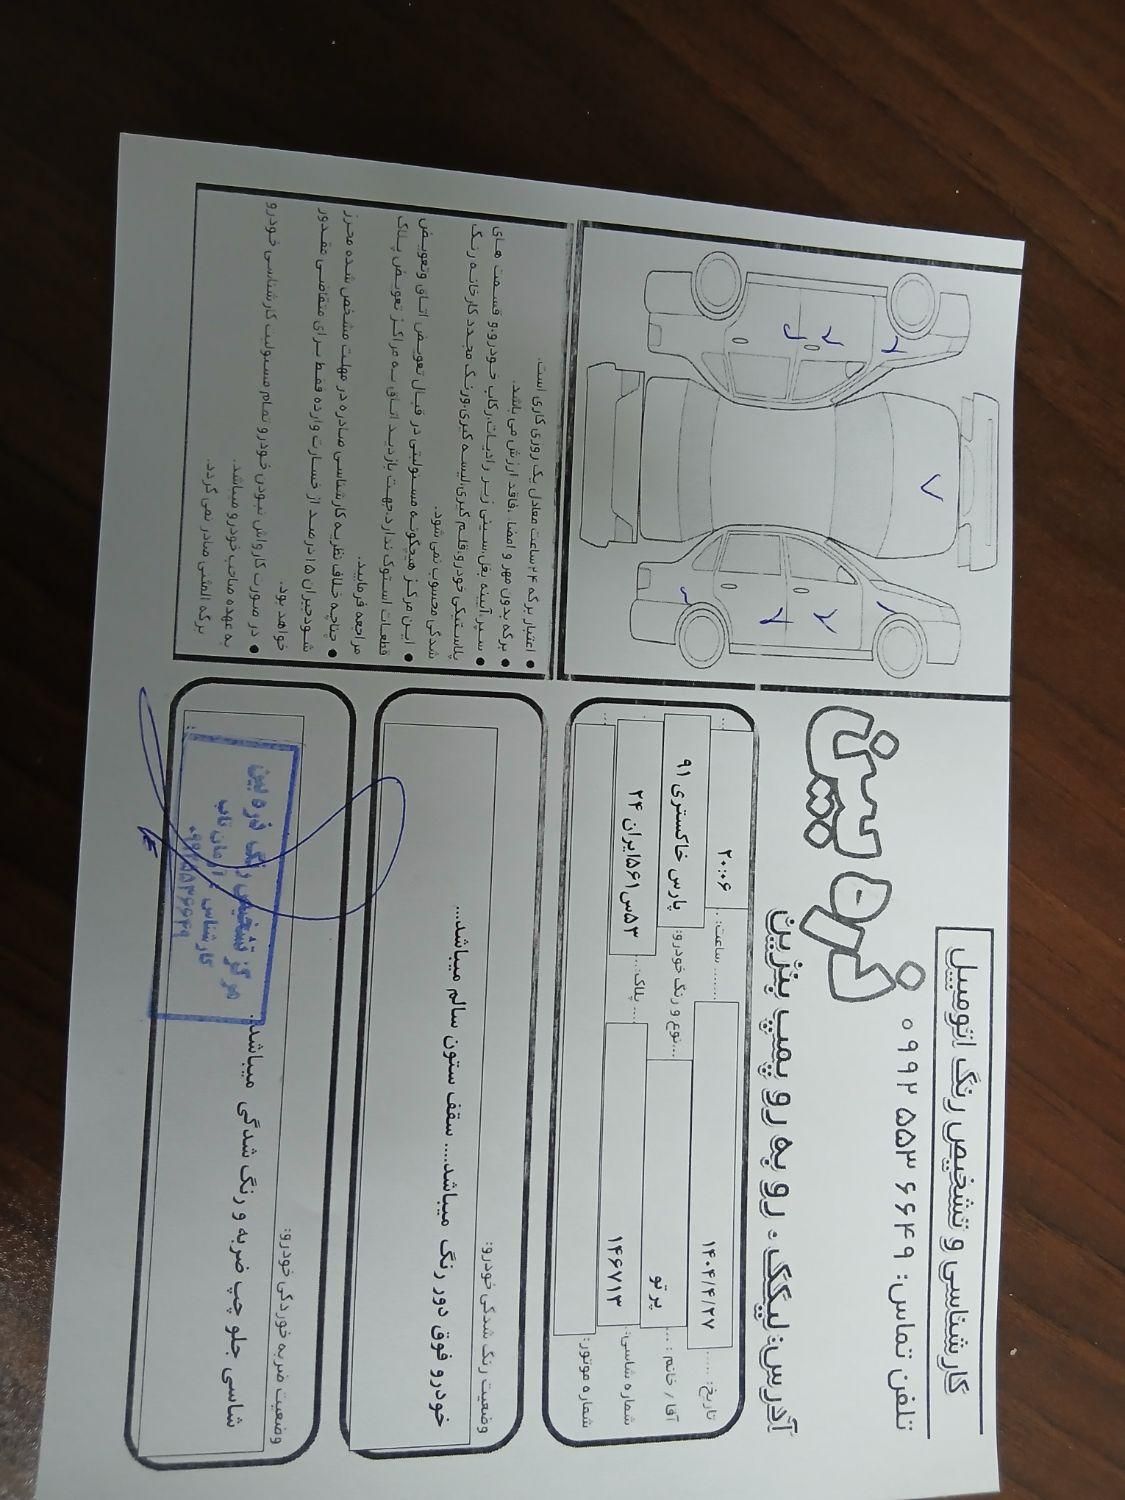 کارشناسی و تشخیص رنگ اتومبیل
تلفن تماس: ۰۹۹۲۵۵۳۶۶۴۹
ذره بین
آدرس: لیکک. رو به رو پمپ بنزین
تاریخ: ..... ۱۴۰۴/۴/۲۷
ساعت: ....... ۲۰:۰۶
آقا / خانم : .... پرتو
نوع و رنگ خودرو:.... پارس خاکستری ۹۱
شماره شاسی: ۱۴۶۷۱۳
پلاک:.... ۵۳س۵۶۱ایران ۲۴
شماره موتور:
وضعیت رنگ شدگی خودرو:
خودرو فوق دور رنگ میباشد.... سقف ستون سالم میباشد...
وضعیت ضربه خوردگی خودرو:
شاسی جلو چپ ضربه و رنگ شدگی میباشد.
مرکز تشخیص رنگ ذره بین
کارشناس : آرمان تاب
۰۹۹۲۵۵۳۶۶۴۹
● اعتبار برگه ۲۴ ساعت معادل یک روزی کاری است.
● برگه بدون مهر و امضا .فاقد ارزش می باشد.
● سپر،آیینه بغل،سینی زیر رادیات،رکاب خودرو،و قسمت های
پلاستیکی خودرو،قلم گیری،لیسه گیری،ورنگ مجدد کارخانه رنگ
شدگی محسوب نمی شود.
● این مرکز هیچگونه مسئولیتی در قبال تعویض اتاق وتعویض
قطعات استوک ندارد.جهت بازدید اتاق به مراکز تعویض پلاک
مراجعه فرمایید.
● چناچه خلاف نظریه کارشناسی صادره در مهلت مشخص شده محرز
شودجبران ۱۵ درصد از خسارت وارده فقط برای متقاضی مقدور
خواهد بود.
● در صورت کارواش نبودن خودرو تمام مسئولیت کارشناسی خودرو
به عهده صاحب خودرو میباشد.
برگه المثنی صادر نمی گردد.